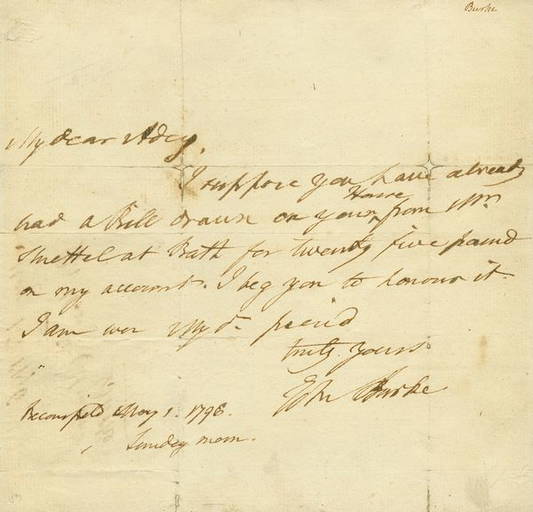 Burke
My dear Adey.
I suppose you have already
House
had a Bill drawn on your from Mr.
at Bath for twenty five pound
on my account. I beg you to honour it.
I am ever My dr friend
truly yours
Edm Burke
Beaconsfield May 1. 1796.
Sunday morn.